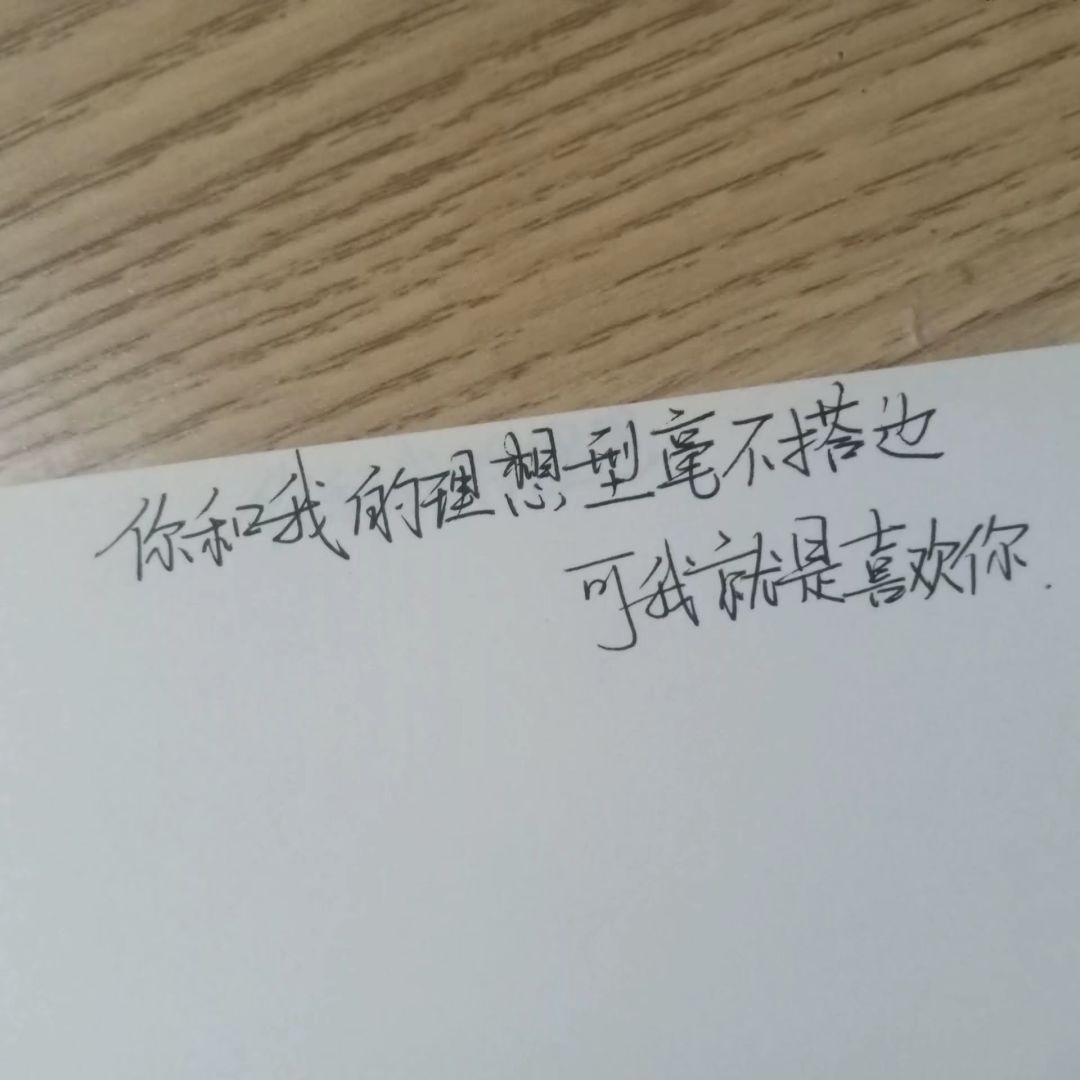 你和我的理想型毫不搭边
可我就是喜欢你.